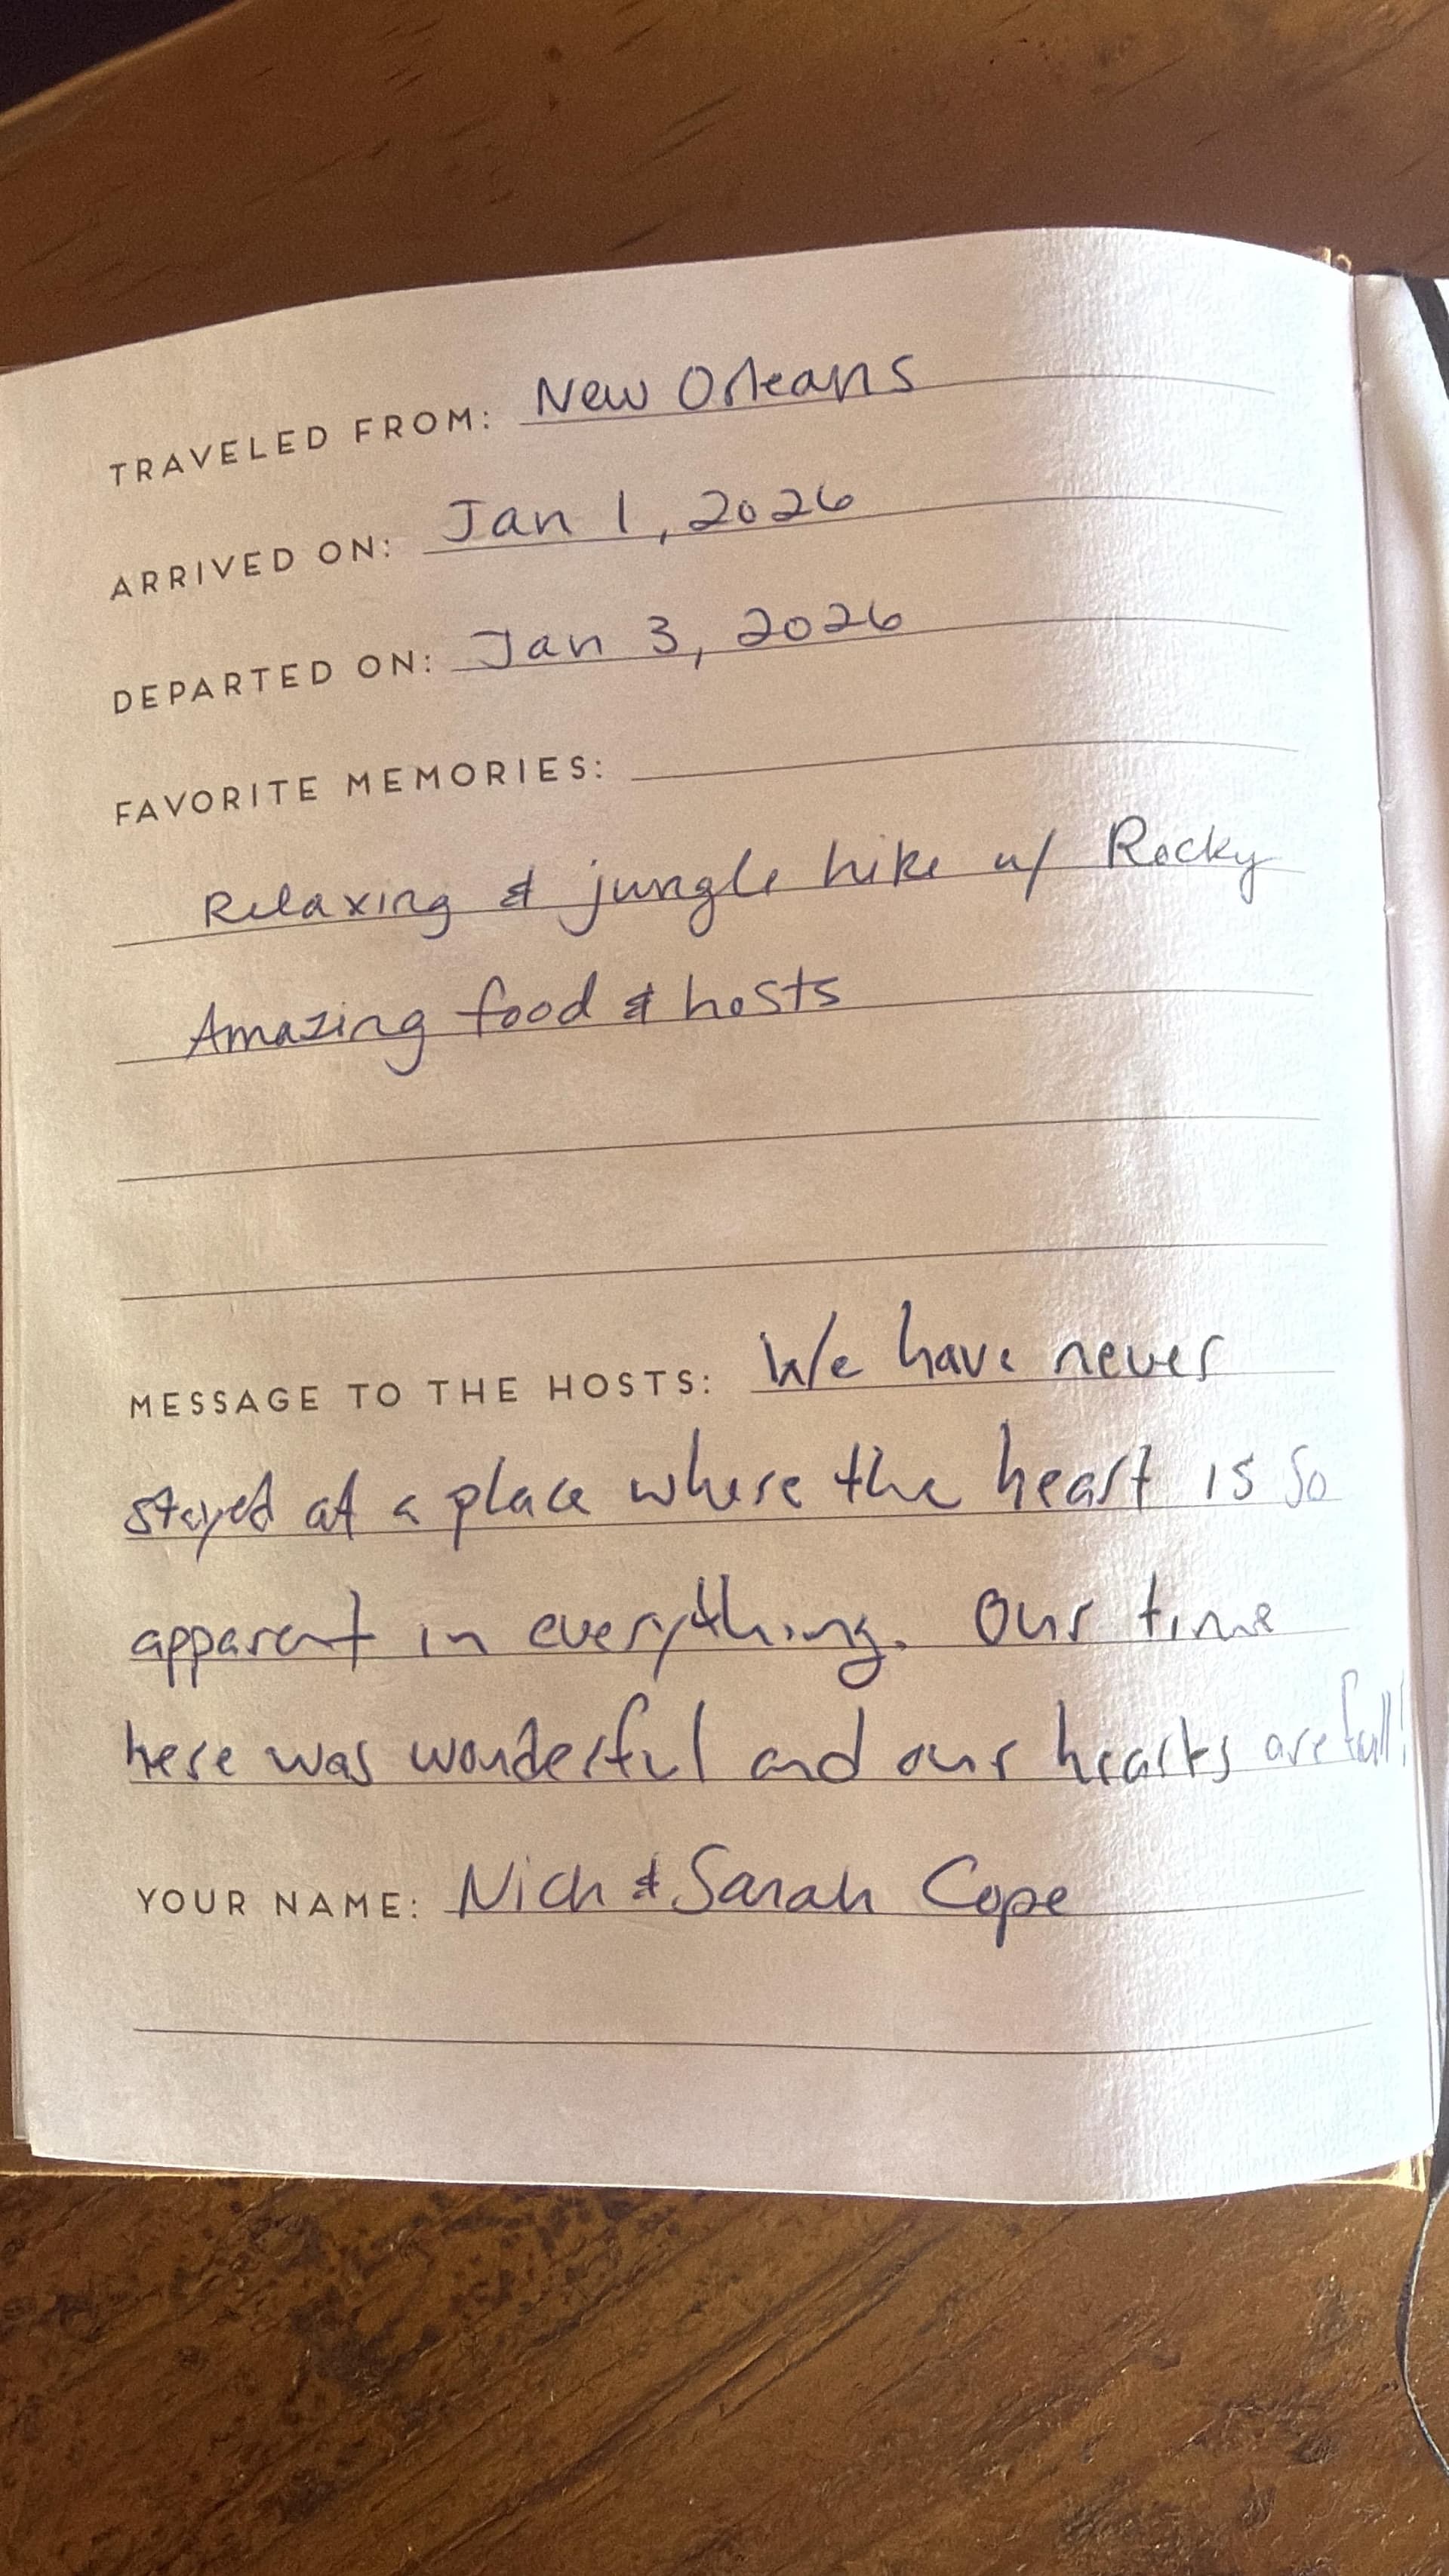 TRAVELED FROM: New Orleans
ARRIVED ON: Jan 1, 2026
DEPARTED ON: Jan 3, 2026
FAVORITE MEMORIES:
Relaxing & jungle hike w/ Rocky
Amazing food & hosts
MESSAGE TO THE HOSTS: We have never
stayed at a place where the heart is so
apparent in everything. Our time
here was wonderful and our hearts are full!
YOUR NAME: Nich & Sarah Cope